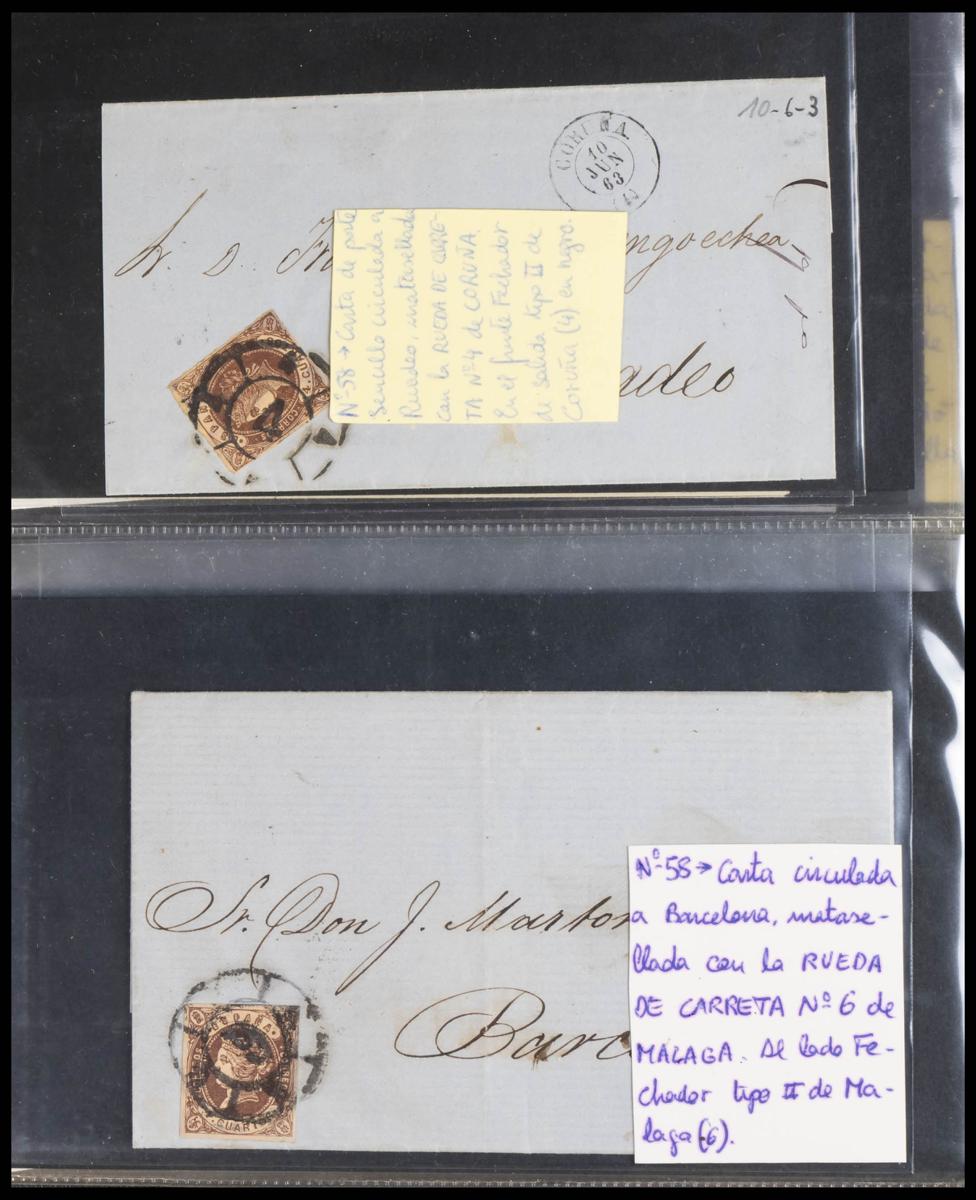 10-6-3
CORUÑA
10
JUN
63
(4)
Sr. D. ngoechea
adeo
Nº 58 → Carta de porte
sencillo circulada a
Rivadeo, matasellada
con la RUEDA DE CARRE-
TA Nº 4 de CORUÑA.
En el frente Fechador
de salida tipo II de
Coruña (4) en negro.
CORREOS
4 CU
4
Sr. Don J. Martor
Barc
ESPAÑA
CUARTOS
Nº 58 → Carta circulada
a Barcelona, matase-
llada con la RUEDA
DE CARRETA Nº 6 de
MALAGA. Al lado Fe-
chador tipo II de Ma-
laga (6).